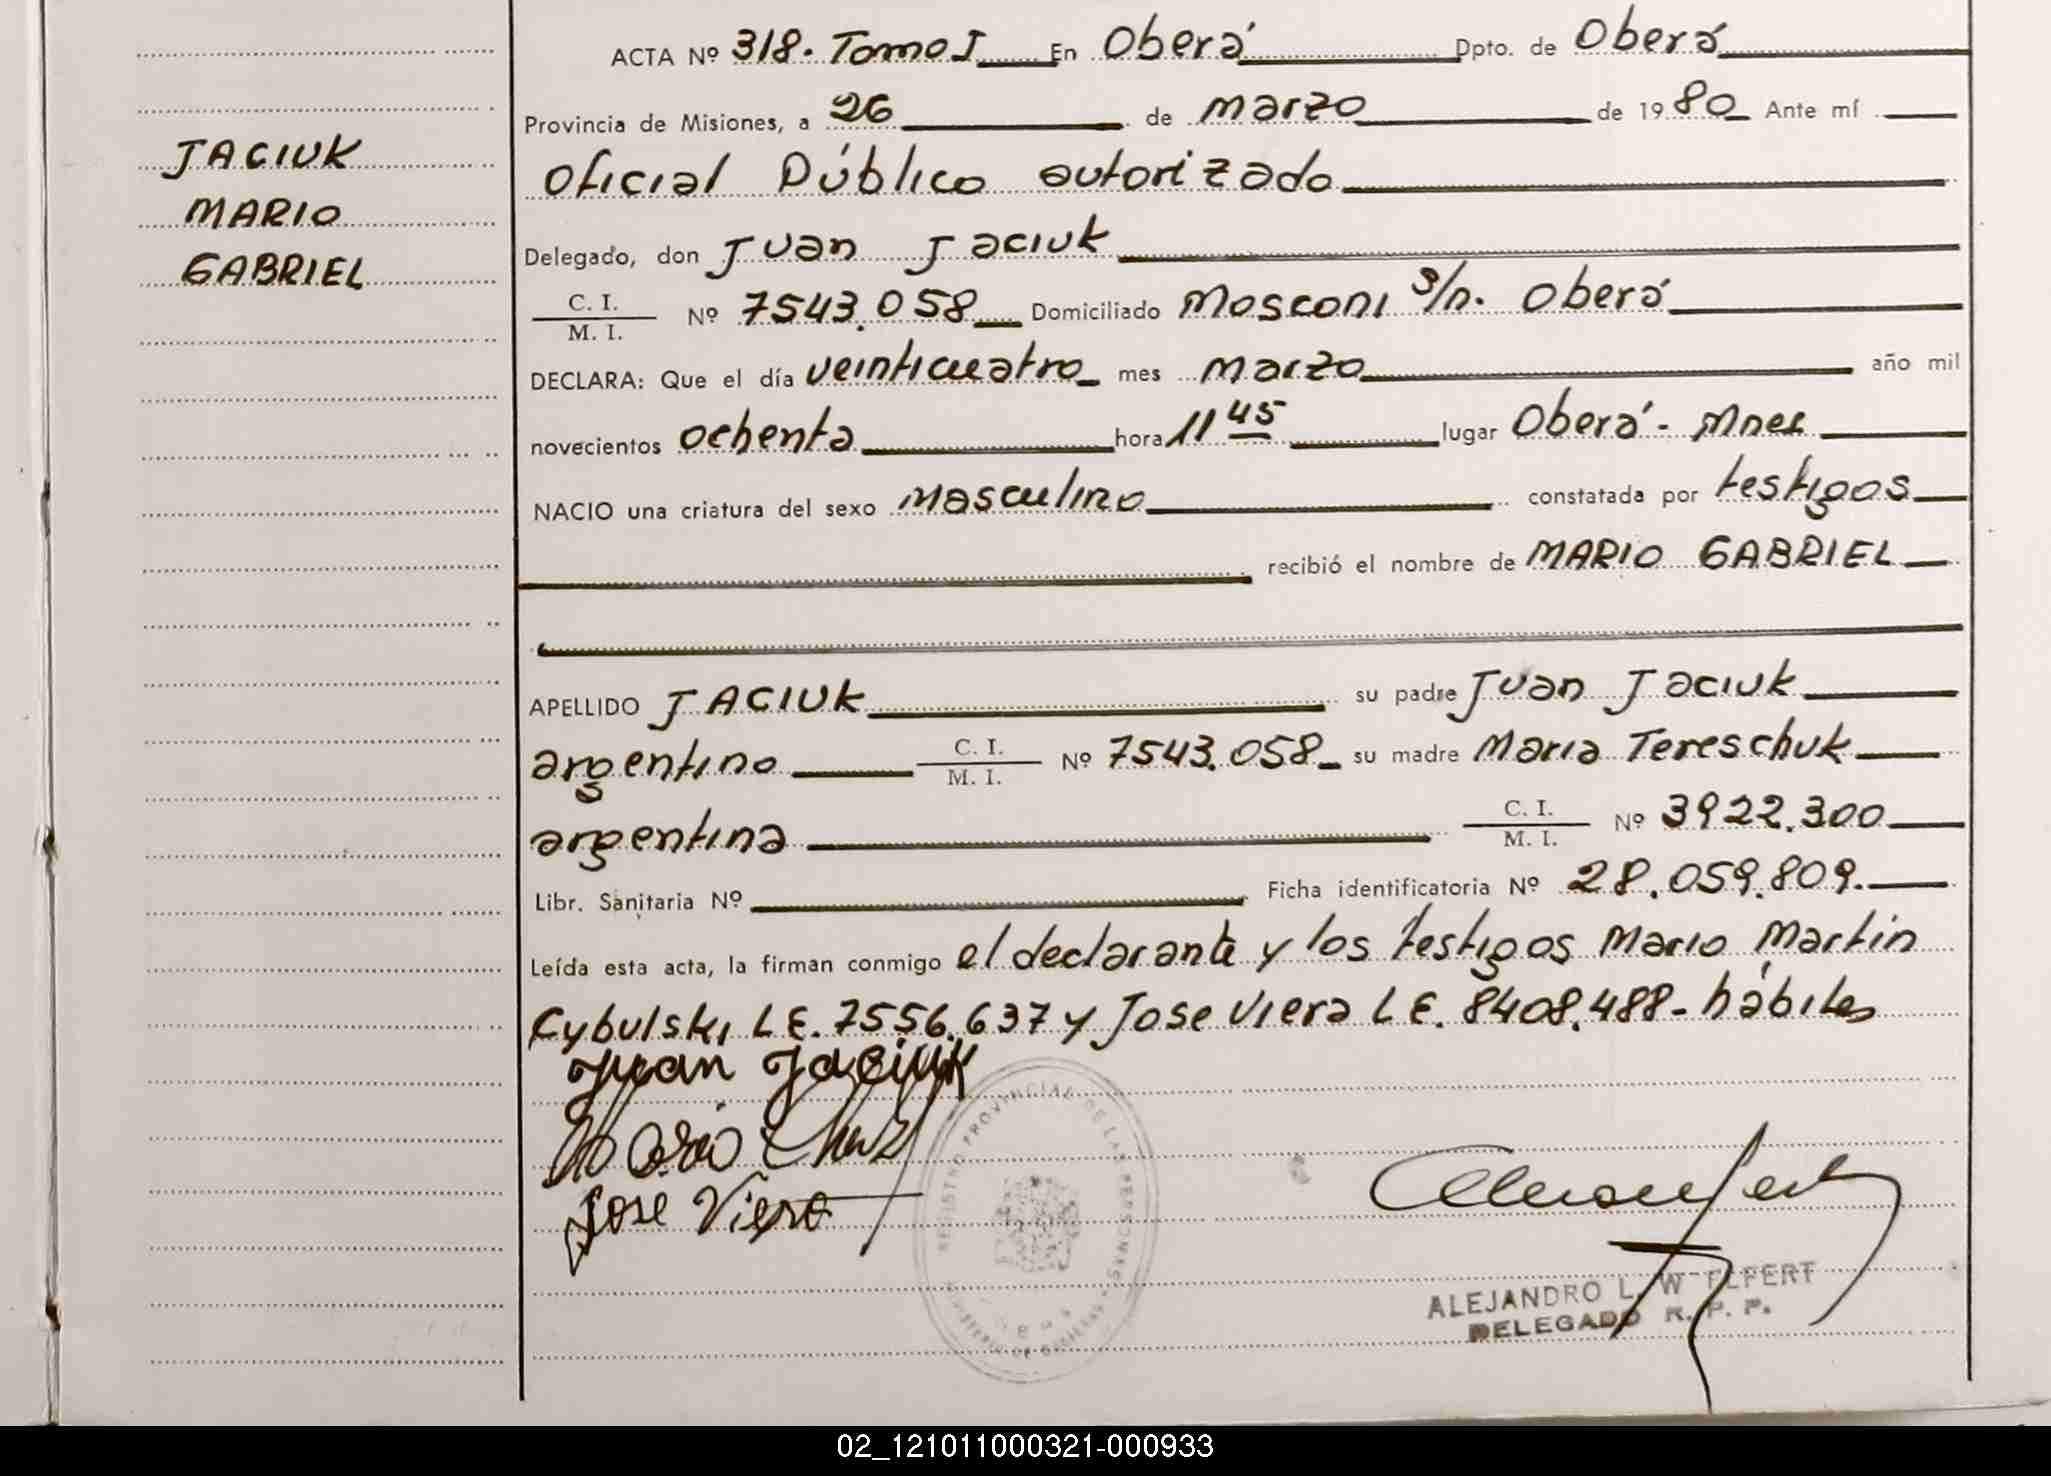 JACIUK
MARIO
GABRIEL
ACTA Nº 318. Tomo I En Oberá Dpto. de Oberá
Provincia de Misiones, a 26 de marzo de 1980 Ante mí
Oficial Público autorizado
Delegado, don Juan Jaciuk
C. I.
M. I.
Nº 7543.058 Domiciliado Mosconi s/n. Oberá
DECLARA: Que el día veinticuatro mes marzo año mil
novecientos ochenta hora 11 45 lugar Oberá - Mnes
NACIO una criatura del sexo masculino constatada por testigos
recibió el nombre de MARIO GABRIEL
APELLIDO JACIUK su padre Juan Jaciuk
argentino C. I. M. I. Nº 7543.058 su madre Maria Tereschuk
argentina C. I. M. I. Nº 3922.300
Libr. Sanitaria Nº Ficha identificatoria Nº 28.059.809.
Leída esta acta, la firman conmigo el declarante y los testigos Mario Martin
Cybulski L E. 7556.637 y Jose Viera L E. 8408.488 - hábiles
Juan Jaciuk
Mario
Jose Viera
REGISTRO PROVINCIAL DE LAS PERSONAS
ALEJANDRO L. W ELFERT
DELEGADO R. P. P.
02_121011000321-000933